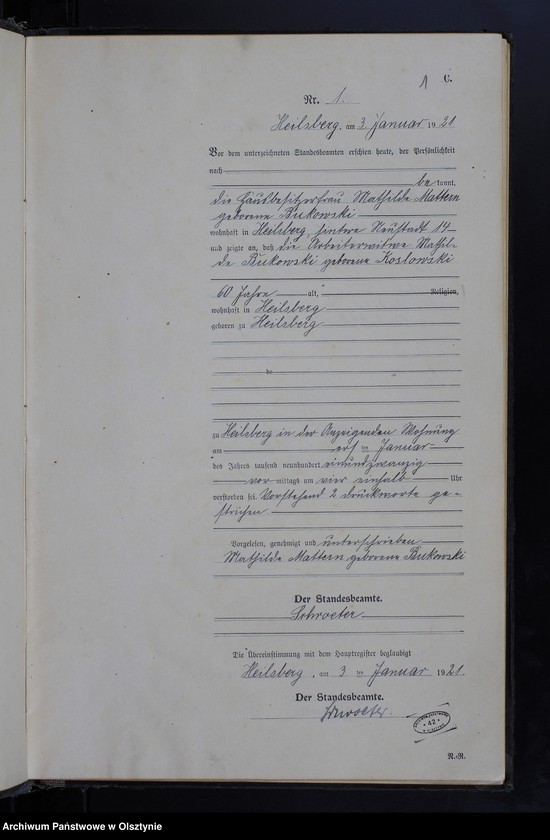 1
C.
Nr. 1.
Heilsberg, am 3. Januar 1921
Vor dem unterzeichneten Standesbeamten erschien heute, der Persönlichkeit
nach
be kannt,
die Hausbesitzerfrau Mathilde Mattern
geborene Bukowski
wohnhaft in Heilsberg, hintere Neustadt 14
und zeigte an, daß die Arbeiterwitwe Mathil-
de Bukowski geborene Koslowski
60 Jahre alt, Religion,
wohnhaft in Heilsberg
geboren zu Heilsberg
de
zu Heilsberg in der Anzeigenden Wohnung
am ersten Januar
des Jahres tausend neunhundert einundzwanzig
vor mittags um vier einhalb Uhr
verstorben sei. Vorstehend 2 Druckworte ge-
strichen.
Vorgelesen, genehmigt und unterschrieben
Mathilde Mattern geborene Bukowski
Der Standesbeamte.
Schroeter
Die Übereinstimmung mit dem Hauptregister beglaubigt
Heilsberg, am 3 ten Januar 1921.
Der Standesbeamte.
Schroeter.
42
N.-R.
Archiwum Państwowe w Olsztynie